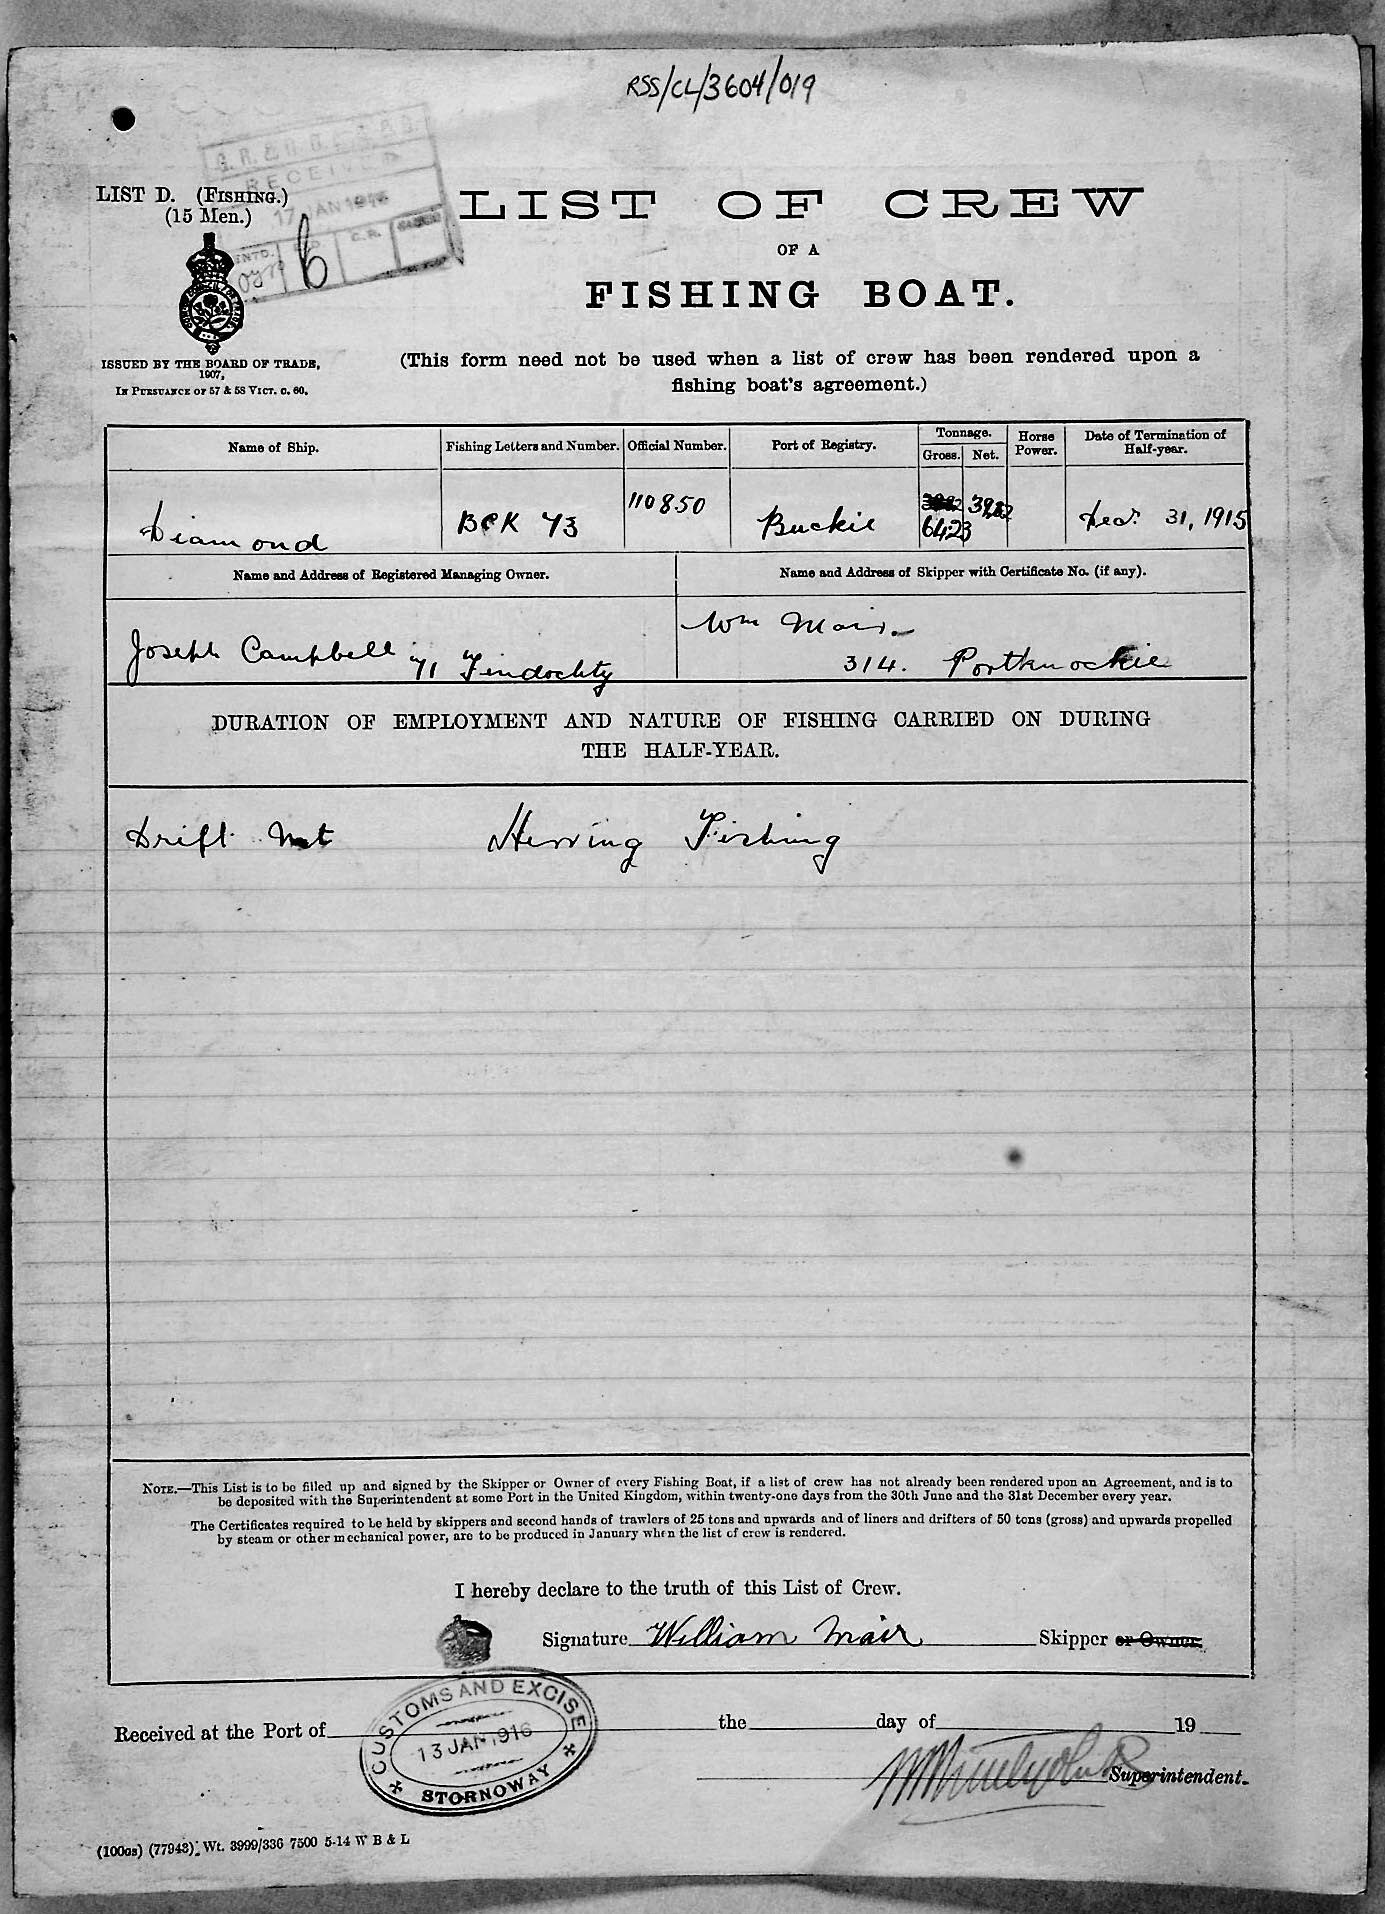 RSS/CL/3604/019
RECEIVED
17 JAN 1916
LIST D. (FISHING.)
(15 Men.)
6
ISSUED BY THE BOARD OF TRADE,
1907,
IN PURSUANCE OF 57 & 58 VICT. C. 60.
LIST OF CREW
OF A
FISHING BOAT.
(This form need not be used when a list of crew has been rendered upon a
fishing boat's agreement.)
Name of Ship. Fishing Letters and Number. Official Number. Port of Registry. Tonnage. Gross. Net. Horse Power. Date of Termination of Half-year.
Diamond BCK 73 110850 Buckie 64.23 39.82 Decr. 31, 1915
Name and Address of Registered Managing Owner. Name and Address of Skipper with Certificate No. (if any).
Joseph Campbell 71 Findochty
Wm Mair
314. Portknockie
DURATION OF EMPLOYMENT AND NATURE OF FISHING CARRIED ON DURING
THE HALF-YEAR.
Drift Net Herring Fishing
NOTE.—This List is to be filled up and signed by the Skipper or Owner of every Fishing Boat, if a list of crew has not already been rendered upon an Agreement, and is to
be deposited with the Superintendent at some Port in the United Kingdom, within twenty-one days from the 30th June and the 31st December every year.
The Certificates required to be held by skippers and second hands of trawlers of 25 tons and upwards and of liners and drifters of 50 tons (gross) and upwards propelled
by steam or other mechanical power, are to be produced in January when the list of crew is rendered.
I hereby declare to the truth of this List of Crew.
Signature William Mair Skipper or Owner.
Received at the Port of the day of 19
CUSTOMS AND EXCISE
13 JAN 1916
STORNOWAY
Superintendent.
(100as) (77943). Wt. 3999/336 7500 5-14 W B & L